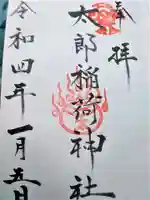 奉拝
太郎稲荷神社
令和四年一月五日